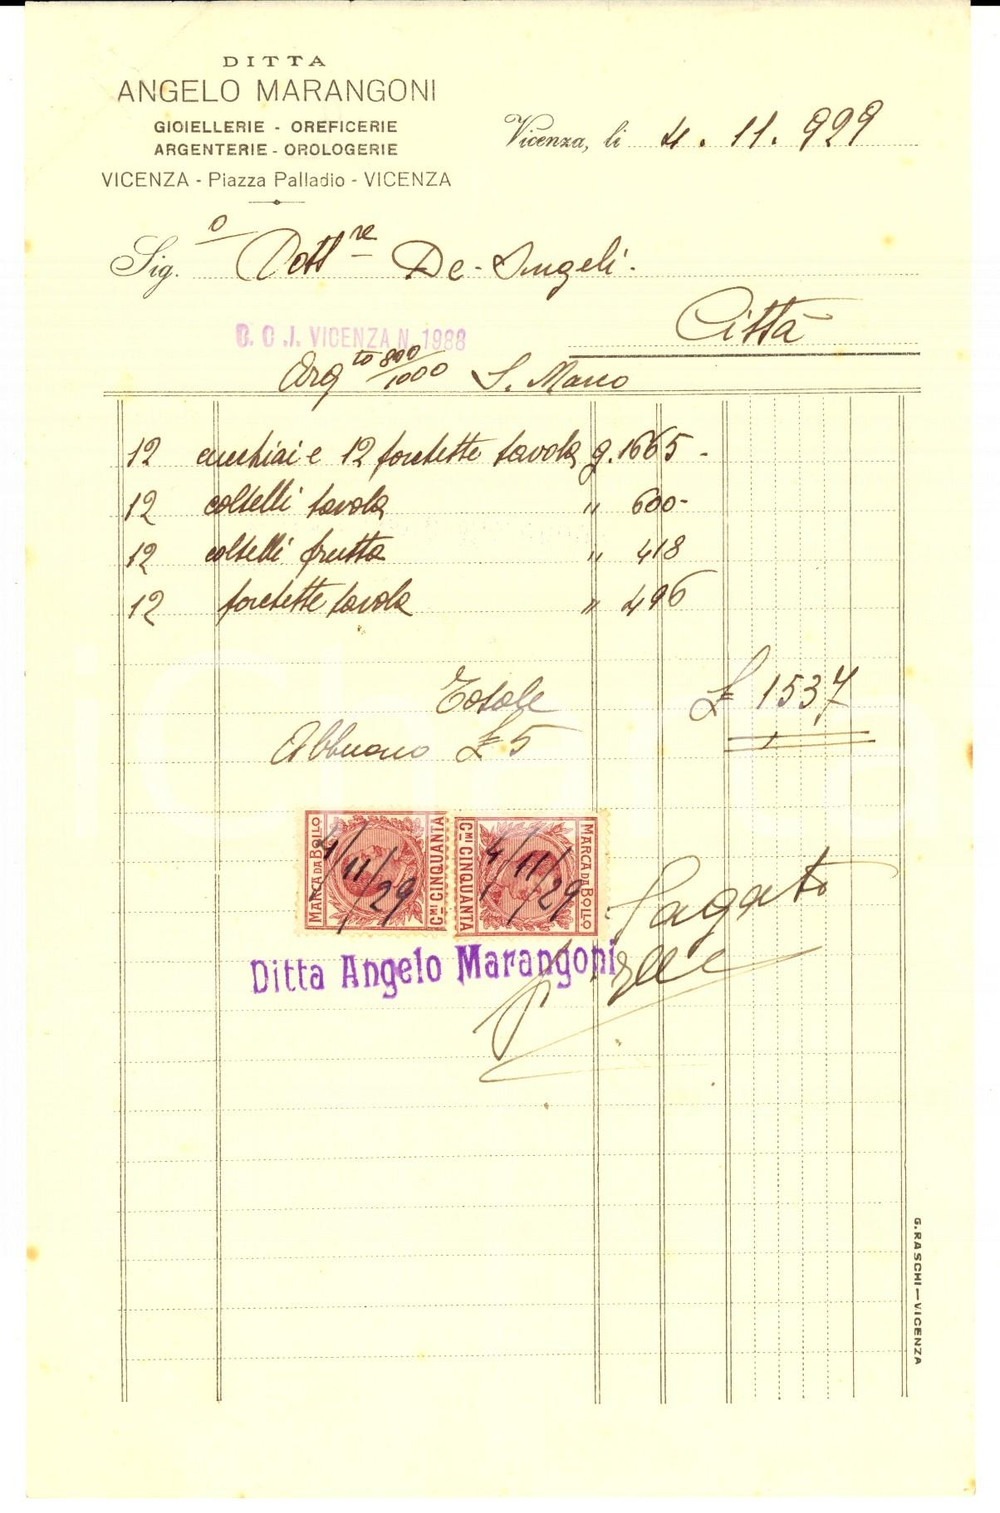 DITTA
ANGELO MARANGONI
GIOIELLERIE - OREFICERIE
ARGENTERIE - OROLOGERIE
VICENZA - Piazza Palladio - VICENZA
Vicenza, li 4. 11. 929
Sig.o Dottre De-Angeli.
Città
C. C. I. VICENZA N. 1988
Argto 800/1000 S. Marco
12 cucchiai e 12 forchette tavola g. 1665 -
12 coltelli tavola " 600-
12 coltelli frutta " 418
12 forchette tavola " 496
Totale £ 1537
Abbuono £ 5
MARCA DA BOLLO
CMI CINQUANTA
4/11/29
CMI CINQUANTA
MARCA DA BOLLO
4/11/29
Pagato
Ditta Angelo Marangoni
G. RASCHI—VICENZA